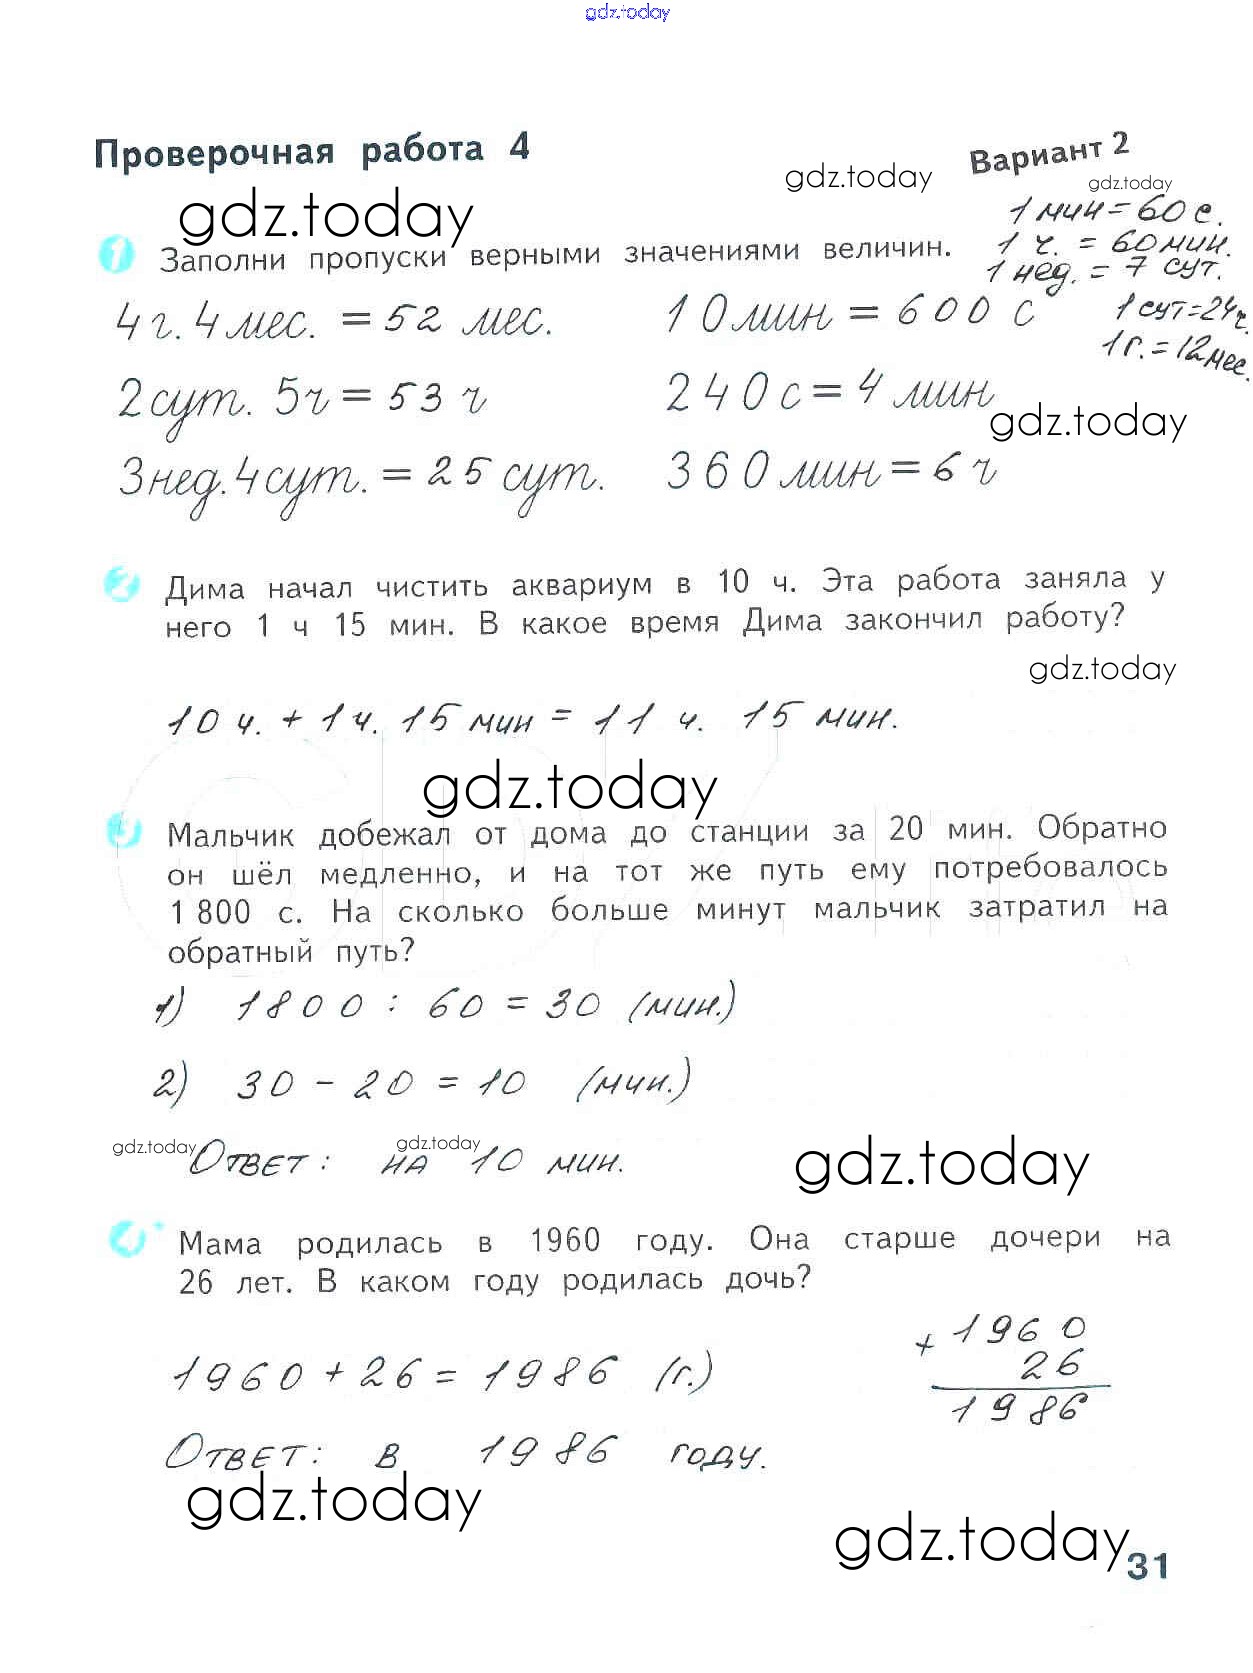 gdz.today
Проверочная работа 4
Вариант 2
gdz.today
gdz.today
gdz.today
1 мин = 60 с.
1 ч. = 60 мин.
1 нед. = 7 сут.
1 сут = 24 ч.
1 г. = 12 мес.
1 Заполни пропуски верными значениями величин.
4 г. 4 мес. = 52 мес.
10 мин = 600 с
2 сут. 5 ч = 53 ч
240 с = 4 мин
gdz.today
3 нед. 4 сут. = 25 сут.
360 мин = 6 ч
2 Дима начал чистить аквариум в 10 ч. Эта работа заняла у
него 1 ч 15 мин. В какое время Дима закончил работу?
gdz.today
10 ч. + 1 ч. 15 мин = 11 ч. 15 мин.
gdz.today
3 Мальчик добежал от дома до станции за 20 мин. Обратно
он шёл медленно, и на тот же путь ему потребовалось
1 800 с. На сколько больше минут мальчик затратил на
обратный путь?
1) 1800 : 60 = 30 (мин.)
2) 30 - 20 = 10 (мин.)
gdz.today
gdz.today
Ответ: на 10 мин.
gdz.today
4* Мама родилась в 1960 году. Она старше дочери на
26 лет. В каком году родилась дочь?
1960 + 26 = 1986 (г.)
+ 1960
26
1986
Ответ: в 1986 году.
gdz.today
gdz.today
31